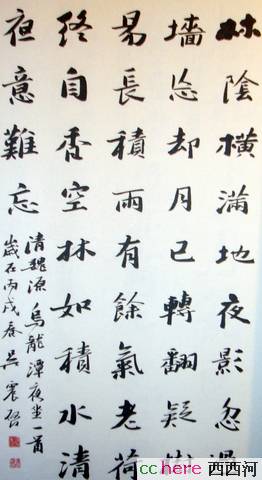 林陰橫滿地夜影忽過
墻忘却月已轉翻疑樹
易長積雨有餘氣老荷
終自香空林如積水清
夜意難忘
清魏源烏龍潭夜坐一首
歲在丙戌春吳震啓
cchere 西西河